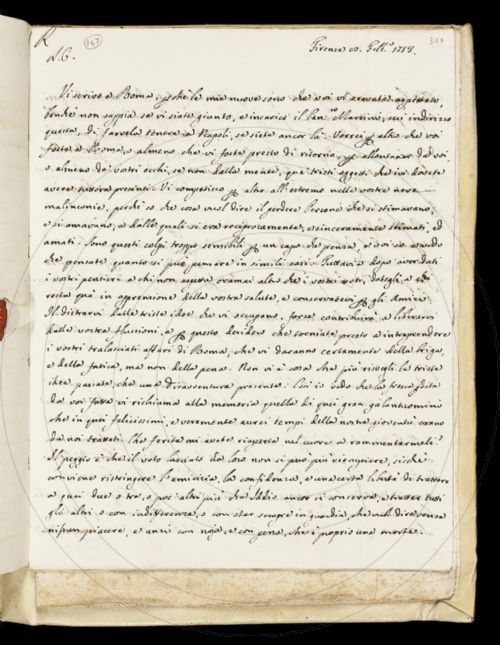 R
147
A. C.
Firenze 10. Febb.º 1758.
300
Vi scrivo a Roma, perchè le mie nuove sono che voi vi eravate aspettato,
benchè non sappia se vi siate giunto, e incarico il Martini, cui indirizzo
questa, di farvela tenere a Napoli, se siete ancor là. Vorrei per altro che voi
foste a Roma, o almeno che vi foste presto di ritorno, per allontanar da voi,
o almeno da' vostri occhi, se non dalla mente, que' tristi oggetti che ora dovete
avere tuttora presenti. Vi compatisco per altro all'estremo nelle vostre nere
malinconie, perchè so che cosa vuol dire il perdere Persone che si stimavano,
e si amavano, e dalle quali si era reciprocamente, e sinceramente stimati, ed
amati. Sono questi colpi troppo sensibili per un capo che pensa, e voi so
che pensate quanto si può pensare in simili casi. Tuttavia dopo accordati
i vostri pensieri a chi non aspetta oramai altro che i vostri voti, dategli a chi
resta quà in apprensione della vostra salute, e conservatevi per gli Amici.
Il distrarvi dalle triste idee che vi occupano, forse contribuirà a liberarvi
dalle vostre flussioni, e per questo desidero che torniate presto a intraprendere
i vostri tralasciati affari di Roma, che vi daranno certamente della briga,
e della fatica, ma non della pena. Non vi è cosa che più risvegli le triste
idee passate, che una disavventura presente: Così io vedo che la
da voi fatta vi richiama alla memoria quella di quei gran galantuomini
che in quei felicissimi, e veramente aurei tempi della nostra gioventù earno
da noi trattati. Che ferita mi avete riaperta nel cuore a rammentarmeli!
Il peggio è che il voto lasciato da loro non si può più riempiere, sicchè
conviene ristringere l'amicizia, la confidenza, e una certa libertà di trattare
a quei due o tre, o poc'altri più che Iddio ancor ci conserva, e trattar tutti
gli altri o con indifferenza, o con star sempre in guardia, che vuol dire senza
nissun piacere, e anzi con noja, e con pena, che è proprio una morte.